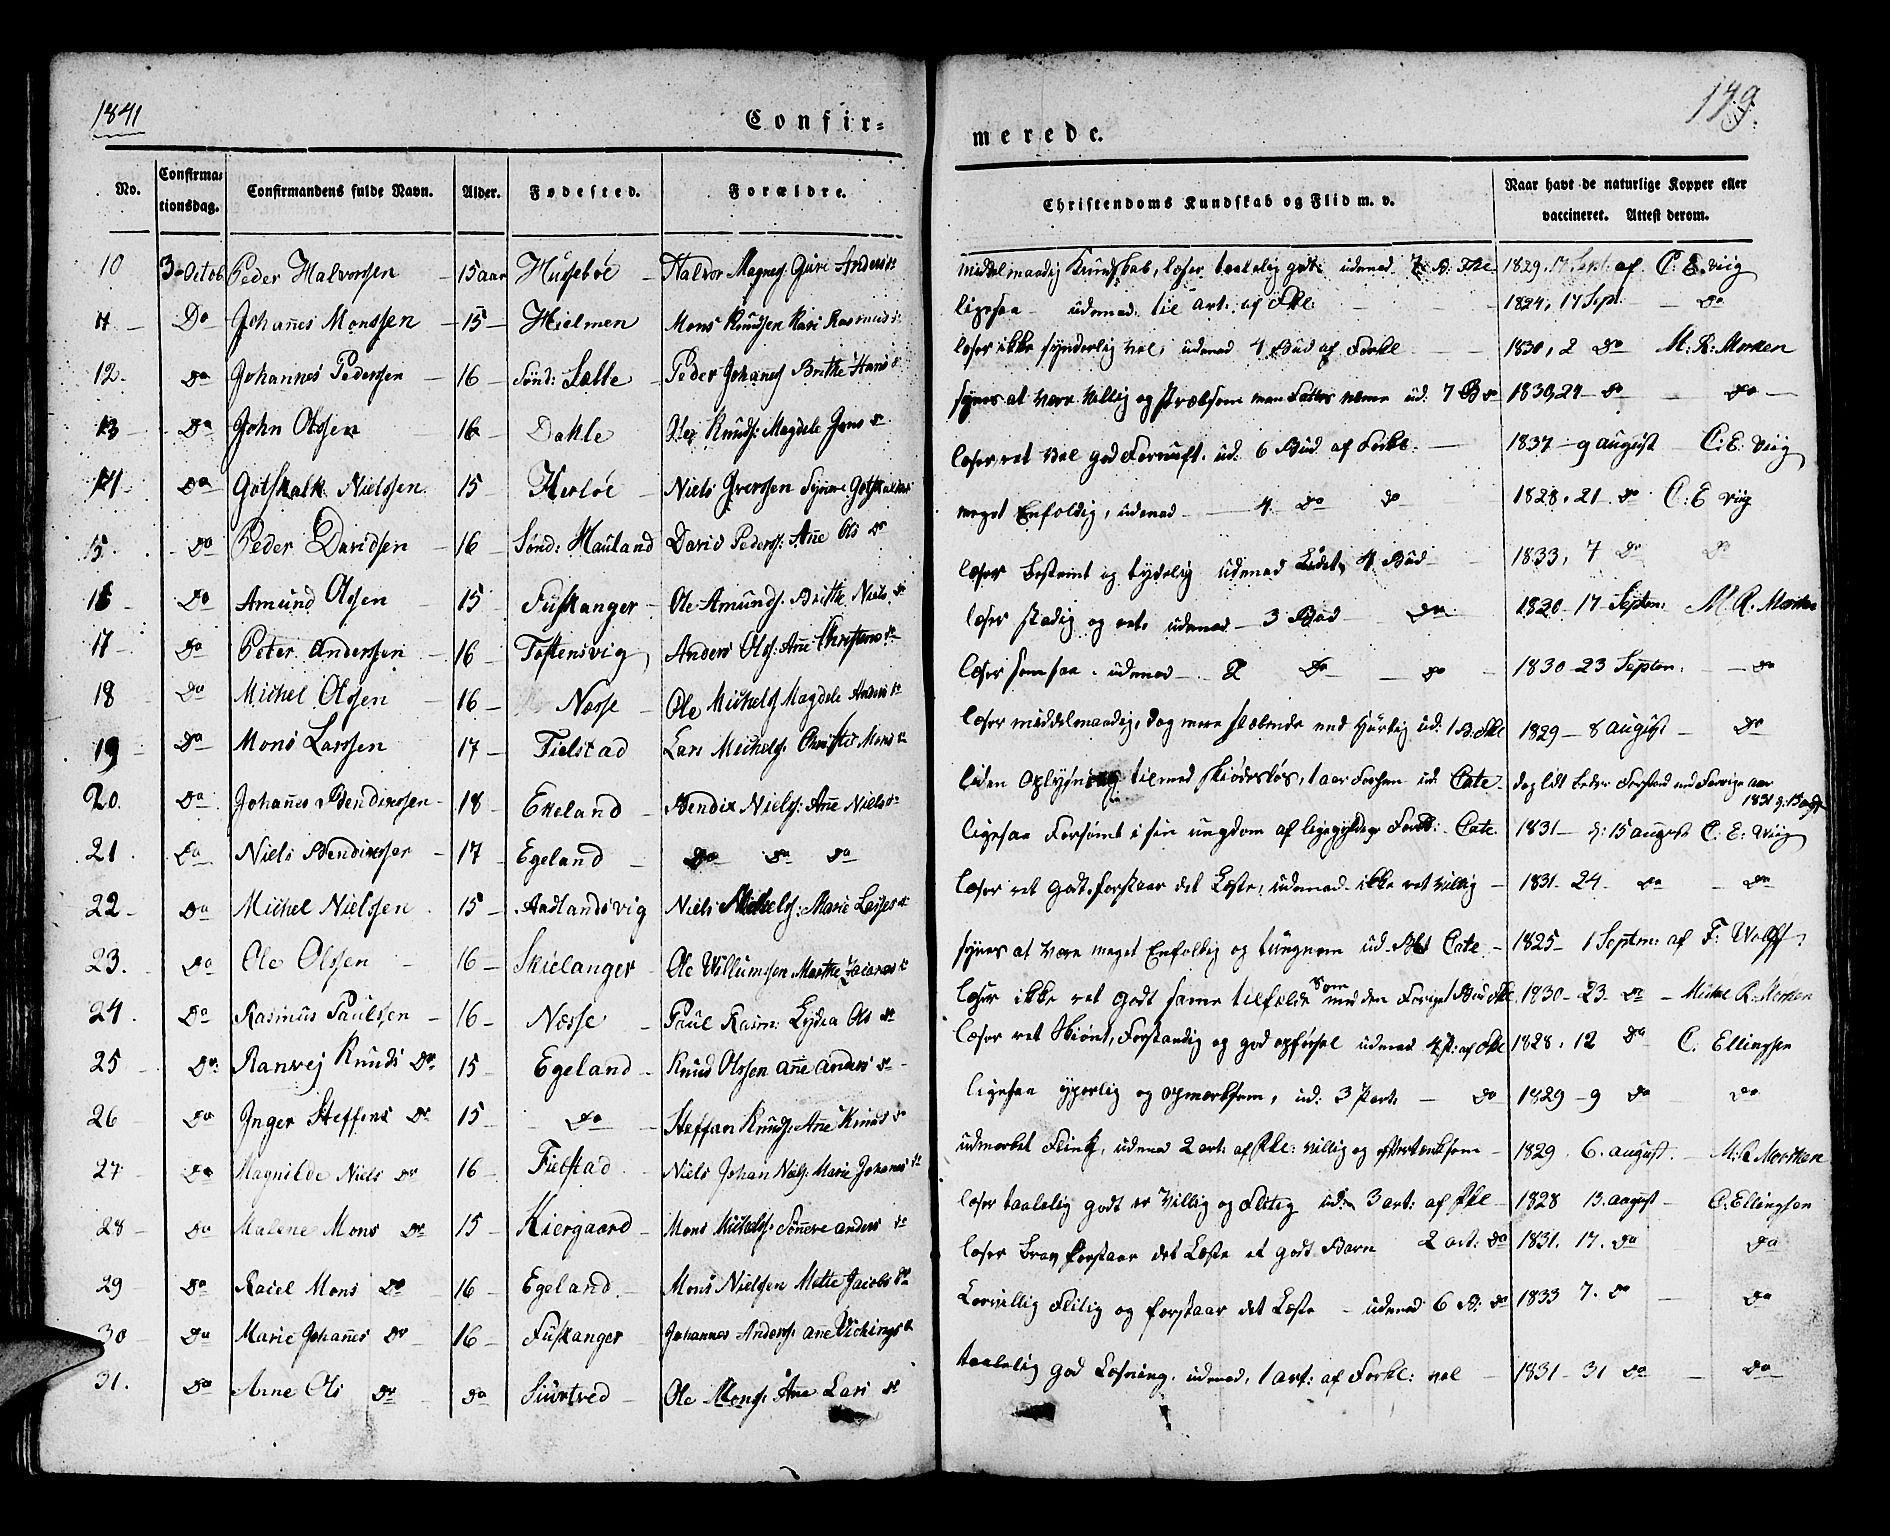 1841
149.
Confir-
merede.
No. Confirma-tionsdag. Confirmandens fulde Navn. Alder. Fødested. Forældre. Christendoms Kundskab og Flid m. v. Naar havt de naturlige Kopper eller vaccineret. Attest derom.
10 3 Octob Peder Halvorssen 15 aar Husebøe Halvor Magnes Guri Anders middelmaadig Kundskab, læser taalelig godt udenad 1829, 17 Sept: af C. E. Viig
11 Do Johañes Monssen 15 Hielmen Mons Knudsen Kari Rasmusd ligesaa udenad til art: af Fkl: 1824, 17 Sept. Do
12. Do Johannes Pederssen 16 Sønd: Sætte Peder Johañes Brithe Hans læser ikke synderlig vel, udenad 4 Bud af Forkl 1830, 2 Do M. R. Morken
13 Do John Olssen 16 Dahle Ole Knuds: Magdele Jons Dr synes at være villig og men ud. 7 B 1830, 24 Do Do
14 Do Gotskalk Nielssen. 15 Herløe Niels Iverssen læser ret vel god Fornuft. ud. 6 Bud af Forkl. 1837 9 august C: E. Viig
15. Do Peder Davidsen 16 Sønd: Hauland David Peders: Añe Ols Dr meget Enfoldig, udenad 4 Do Do 1828, 21 Do C: E Viig
16 Do Amund Olssen 15 Fuskanger Ole Amunds. Brithe Niels Dr læser bestemt og tydelig udenad 4 Bud 1833, 7 Do D
17 Do Peter Anderssen 16 Toftensvig Anders Ols: Añe læser stadig og ret udenad 3 Bud Do 1830 17 Septm: M. R. Morken
18 Do Michel Olssen 16 Næsse Ole Michels Magdele Anders læser udenad 2 Do Do 1830 23 Septm: Do
19 Do Mons Larssen 17 Fielstad Lars Michels: Mons læser middelmaadig, dog mere end ud. 1829 8 august Do
20. Do Johañes Bendixssen 18 Ekeland Bendix Niels: Añe Niels liden Oplysning ud. Cate dog lidt bedre Forstand end Forrige
1831
21 Do Niels Bendixsser 17 Egeland Do Do Do ligesaa Forsømt i sin ungdom af Cate 1831 d: 15 august C. E. Viig
22 Do Michel Nielssen 15 Aadlandsvig Niels Michels: Marie læser ret godt, forstaar det Læste, udenad ikke ret villig 1831 24 Do Do
23. Do Ole Olssen 16 Skielanger Ole Willumssen Marthe synes at være meget Enfoldig og tungnem ud. Cate 1825 1 Septm: af F: Wolff
24 Do Rasmus Paulssen 16 Næsse Paul Rasm: Lydia Ols Dr læser ikke ret godt samme tilfælde som med den 1830 23 Do Michel R. Morken
25 Do Ranvej Knuds Dr 15 Egeland Knud Olssen añe anders Dr læser ret Skiønt, Forstandig og god opførsel udenad 1828. 12 Do C. Ellingsen
26 Do Inger Steffens Dr 15 Do Steffan Knuds: Añe Knuds Dr ligesaa og opmerksom, ud: 3 1829 9 Do Do
27 Do Magnilde Niels Dr 16 Fielstad Niels Johan Niels: Marie Johanes Dr udmerket Flink, udenad 2 art: af Fkl: villig og 1829 6. august. M. R Morken
28 Do Malene Mons Dr 15 Kiergaard Mons Michels: anders Dr læser taalelig godt er Villig og Flitig 3 art: af Fkl 1828 13. august C. Ellingsen
29 Do Raiel Mons Do 16 Egeland Mons Nielssen Mette Jacobs Dr læser brav forstaar det Læste et godt Barn 2 art: Do 1831. 17. Do Do
30 Do Marie Johañes Dr 16 Fuskanger Johannes Anders: añe Vichings Lærvillig Flitig og forstaar det Læste udenad 6 B: Do 1833 7. Do Do
31. Do Anne Ols Dr Do Siurtved Ole Mons: Añe Lars Dr taalelig god Læsning. udenad, 1 art: af Forkl: vel 1831 31 Do Do